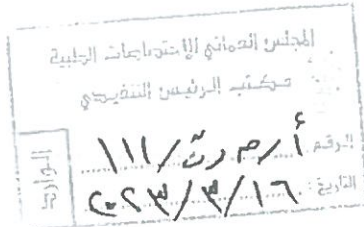 المجلس العماني للإختصاصات الطبية
مكتب الرئيس التنفيذي
الرقم: أ/م ر ت/١١١
التاريخ: ٢٠٢٣/٣/١٦
الوارد